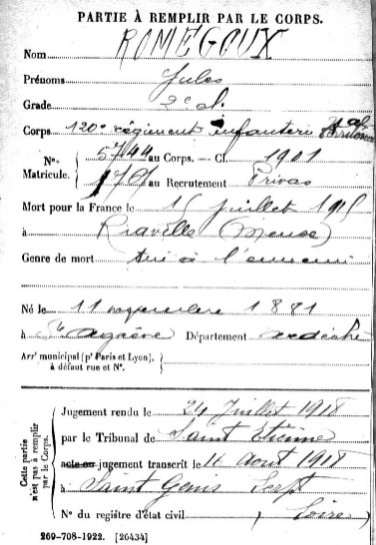 PARTIE À REMPLIR PAR LE CORPS.
Nom ROMÉGOUX
Prénoms Jules
Grade 2e cl.
Corps 120e régiment infanterie
Nos Matricule. 5744 au Corps. — Cl. 1901
au Recrutement Privas
Mort pour la France le 15 juillet 1915
à (Meuse)
Genre de mort tué à l'ennemi
Né le 11 novembre 1881
à St Agrève Département Ardèche
Arrt municipal (pr Paris et Lyon), à défaut rue et No.
Cette partie n'est pas à remplir par le Corps.
Jugement rendu le 24 Juillet 1918
par le Tribunal de Saint Etienne
acte ou jugement transcrit le 14 Aout 1918
à Saint Genis
No du registre d'état civil (Loire)
269-708-1922. [26434]